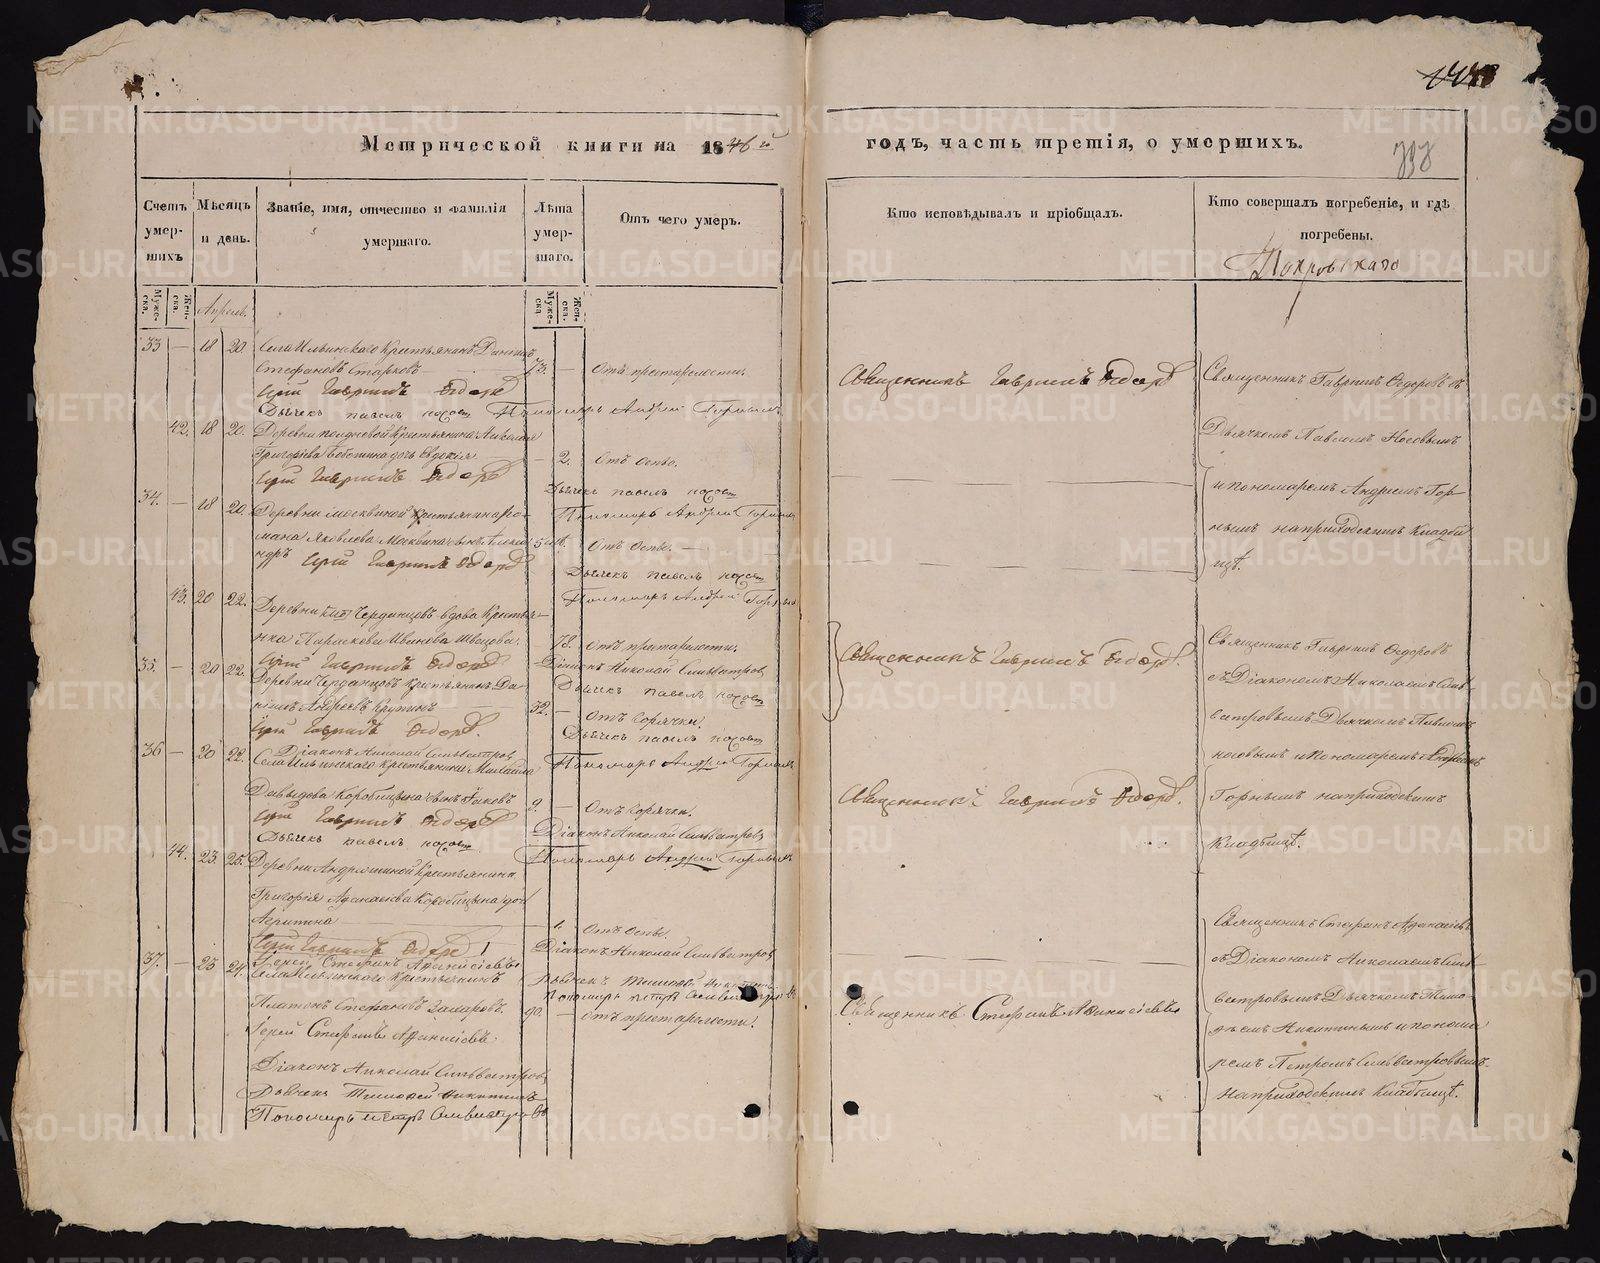 Метрической книги на 1846й
годъ, часть третія, о умершихъ.
398
Счетъ умер-шихъ
Мѣсяцъ и день.
Званіе, имя, отчество и фамилія умершаго.
Лѣта умер-шаго.
Отъ чего умеръ.
Кто исповѣдывалъ и пріобщалъ.
Кто совершалъ погребеніе, и гдѣ погребены.
Покровскаго
Муже-ска.
Жен-ска.
Апрель.
Муже-ска
Жен-ска.
33 — 18 20. Села Ильинскаго Крестьянинъ
Стефановъ Старковъ 73. — Отъ престарелости.
Священникъ Гавриилъ Ѳедоровъ
Іерей Гавриилъ Ѳедоровъ
Дьячекъ Павелъ Носовъ Пономарь Андрей Горныхъ
42. 18 20. Деревни Полдневой Крестьянина
Григорьева дочь Евдокія — 2. Отъ Оспы.
Іерей Гавриилъ Ѳедоровъ
Дьячекъ Павелъ Носовъ
34. — 18 20. Деревни Москвиной Крестьянина Ро-
Пономарь Андрей Горныхъ
мана Яковлева Москвина сынъ Алекса-
ндръ 5 Отъ Оспы.
Іерей Гавриилъ Ѳедоровъ
Дьячекъ Павелъ Носовъ
Пономарь Андрей Горныхъ
43. 20 22. Деревни Черданцовъ вдова Крестья-
нка Параскева Иванова Швецова. 78. Отъ престарелости.
Іерей Гавриилъ Ѳедоровъ
Діаконъ Николай Сильвестровъ
Дьячекъ Павелъ Носовъ
35. — 20 22. Деревни Черданцовъ Крестьянинъ Да-
ніилъ Андреевъ Крутинъ 32. — Отъ Горячки.
Іерей Гавриилъ Ѳедоровъ.
Дьячекъ Павелъ Носовъ
Діаконъ Николай Сильвестровъ
Пономарь Андрей Горныхъ
36 — 20 22. Села Ильинскаго Крестьянина Михаила
Давыдова Коробицына сынъ Іаковъ 9. — Отъ Горячки.
Іерей Гавриилъ Ѳедоровъ
Діаконъ Николай Сильвестровъ
Дьячекъ Павелъ Носовъ
Пономарь Андрей Горныхъ
44. 23 25. Деревни Андрюшиной Крестьянина
Григорія Афанасьева Коробицына дочь
Агрипина Отъ Оспы.
Іерей Гавриилъ Ѳедоровъ
Діаконъ Николай Сильвестровъ
Іерей Стефанъ Афанасіевъ
Дьячекъ Тимофей Никитинъ
Пономарь Петръ Сильвестровъ
37. — 23 24. Села Ильинскаго Крестьянинъ
Платонъ Стефановъ 90. — Отъ престарелости.
Іерей Стефанъ Афанасіевъ
Діаконъ Николай Сильвестровъ
Дьячекъ Тимофей Никитинъ
Пономарь Петръ Сильвестровъ
Священникъ Гавриилъ Ѳедоровъ съ
Дьячкомъ Павломъ Носовымъ
и пономаремъ Андреемъ Гор-
нымъ на приходскомъ Кладби
щѣ.
Священникъ Гавриилъ Ѳедоровъ.
Священникъ Гавриилъ Ѳедоровъ
съ Діакономъ Николаемъ Силь-
вестровымъ Дьячкомъ Павломъ
Носовымъ и Пономаремъ Андреемъ
Священникъ Гавриилъ Ѳедоровъ.
Горнымъ на приходскомъ
Кладбищѣ.
Священникъ Стефанъ Афанасіевъ
съ Діакономъ Николаемъ Силь-
вестровымъ Дьячкомъ Тимо-
Священникъ Стефанъ Афанасіевъ
феемъ Никитинымъ и понома
ремъ Петромъ Сильвестровымъ
На приходскомъ Кладбищѣ.
METRIKI.GASO-URAL.RU